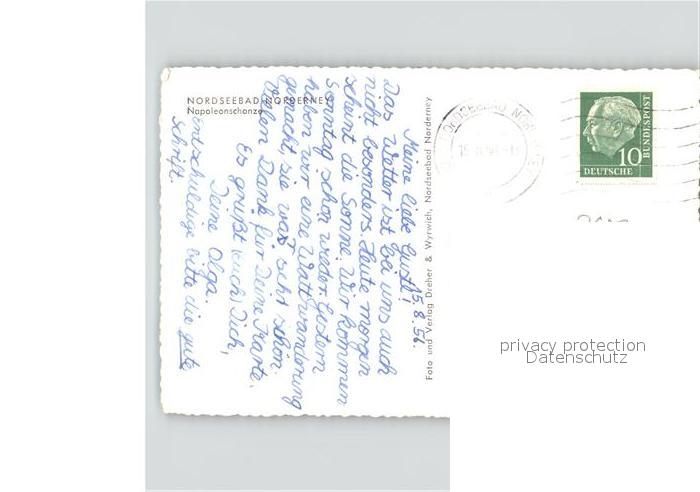 NORDSEEBAD NORDERNEY
Napoleonschanze
15.8.56.
Meine liebe
Das Wetter ist bei uns auch
nicht besonders. Heute morgen
scheint die Sonne. Wir kommen
Sonntag schon wieder. Gestern
haben wir eine Wattwanderung
gemacht, sie war sehr schön.
Vielen Dank für Deine Karte.
Es grüßt (euch) Dich,
Deine Olga.
Entschuldige bitte die gute
Schrift.
Foto und Verlag Dreher & Wyrwich, Nordseebad Norderney
10
DEUTSCHE
BUNDESPOST
privacy protection
Datenschutz